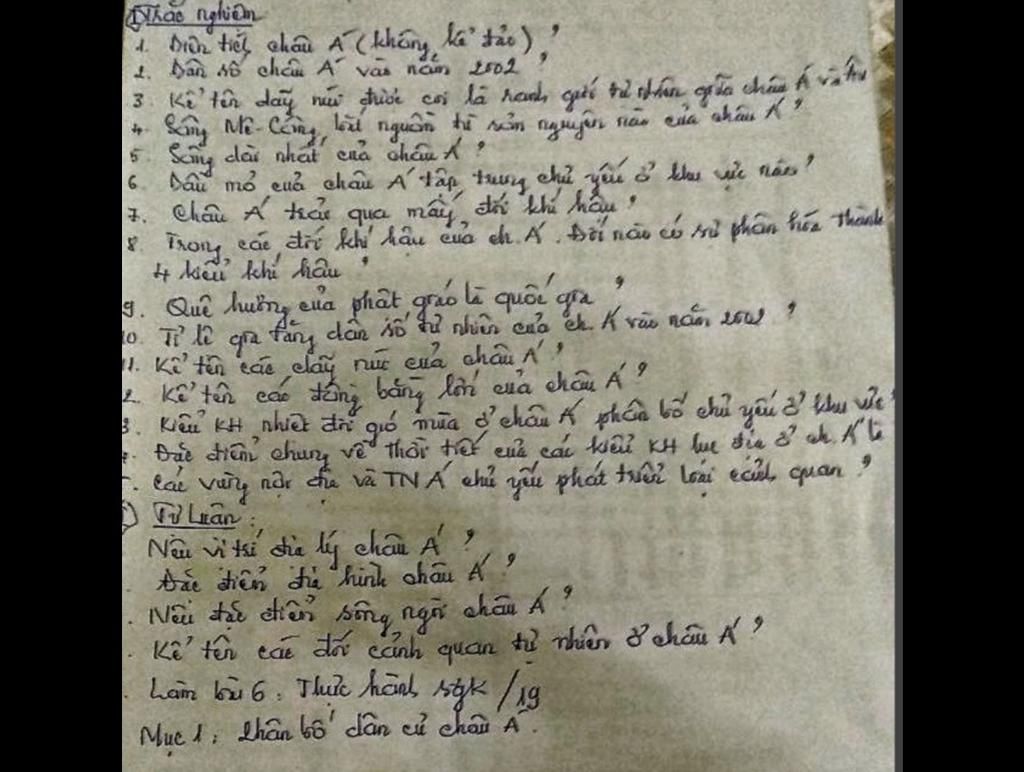 I) Trắc nghiệm
1. Diện tích châu Á (không kể đảo) ?
2. Dân số châu Á vào năm 2002 ?
3. Kể tên dãy núi được coi là ranh giới tự nhiên giữa châu Á và Âu
4. Sông Mê-Công bắt nguồn từ sơn nguyên nào của châu Á ?
5. Sông dài nhất của châu Á ?
6. Dầu mỏ của châu Á tập trung chủ yếu ở khu vực nào ?
7. Châu Á trải qua mấy đới khí hậu ?
8. Trong các đới khí hậu của ch. Á. Đới nào có sự phân hóa thành
4 kiểu khí hậu ?
9. Quê hương của phật giáo là quốc gia ?
10. Tỉ lệ gia tăng dân số tự nhiên của ch. Á vào năm 2002 ?
11. Kể tên các dãy núi của châu Á ?
2. Kể tên các đồng bằng lớn của châu Á ?
3. Kiểu KH nhiệt đới gió mùa ở châu Á phân bố chủ yếu ở khu vực ?
Đặc điểm chung về thời tiết của các kiểu KH lục địa ở ch. Á là
Các vùng nội địa và TN Á chủ yếu phát triển loại cảnh quan ?
) Tự Luận :
Nêu vị trí địa lý châu Á ?
Đặc điểm địa hình châu Á ?
. Nêu đặc điểm sông ngòi châu Á ?
. Kể tên các đới cảnh quan tự nhiên ở châu Á ?
. Làm bài 6 : Thực hành sgk /19
Mục 1 : Phân bố dân cư châu Á.